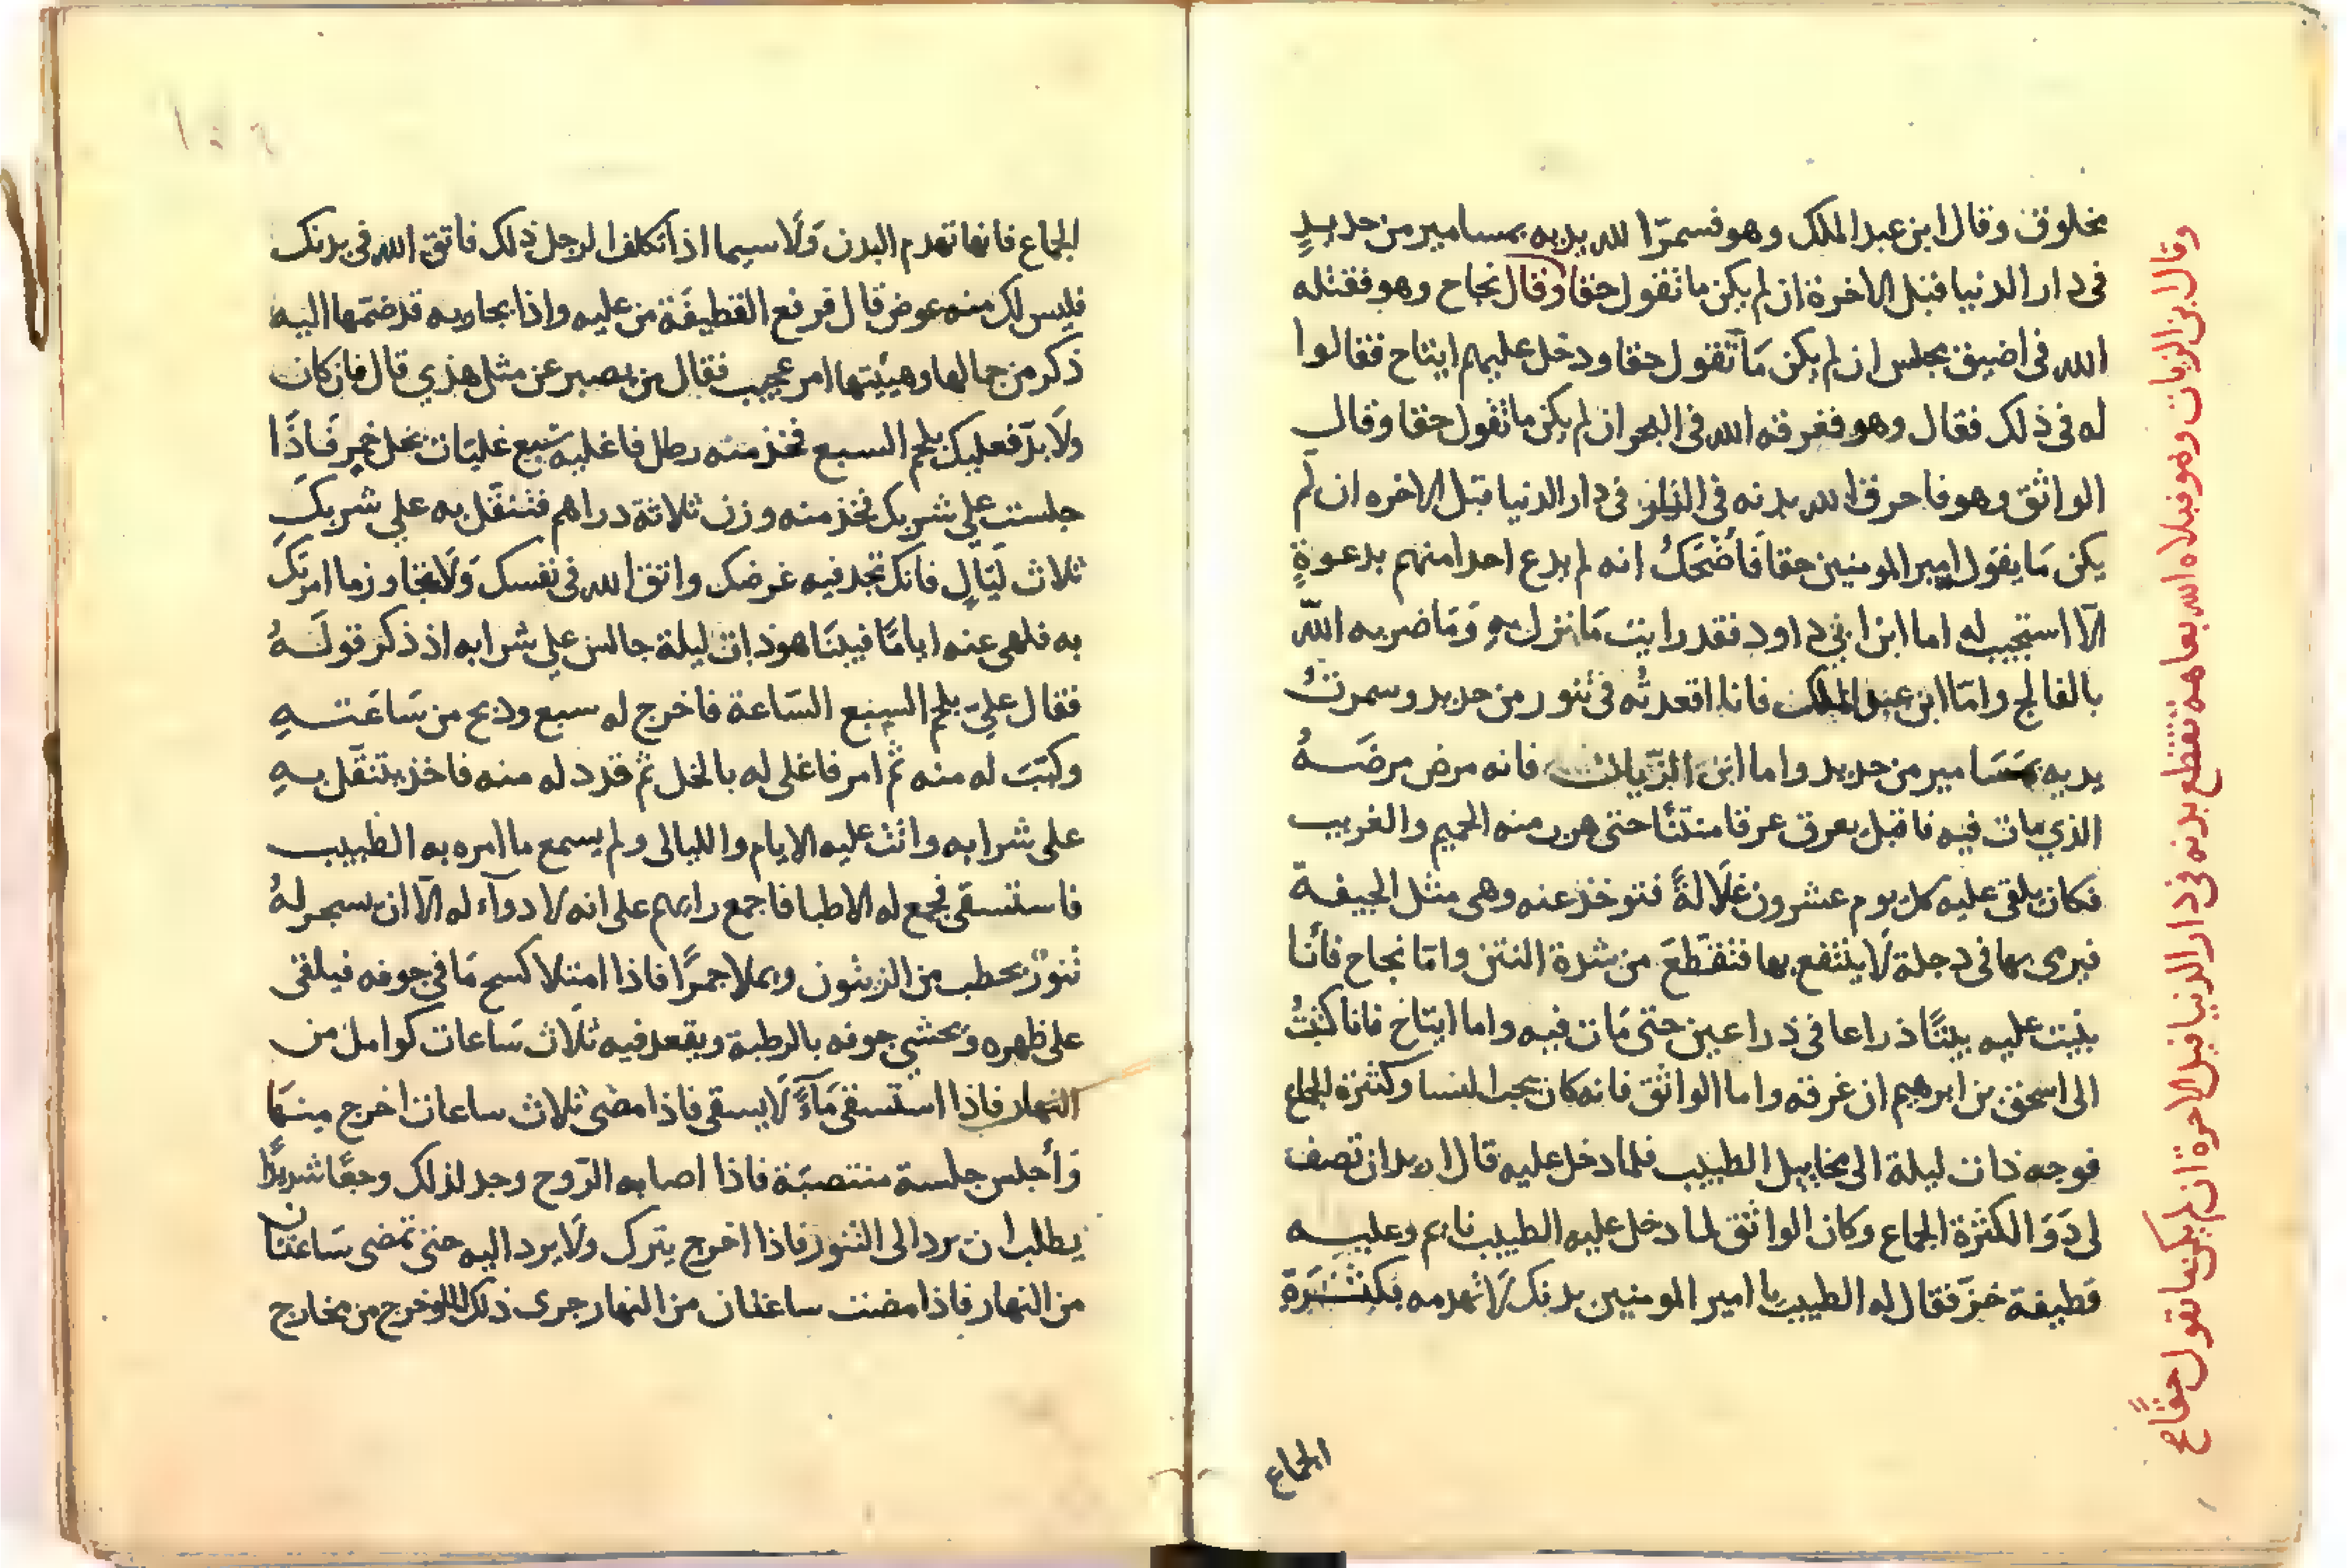 مخلوق وقال ابن عبد الملك وهو فسمرّ الله يديه بمسامير من حديدٍ
فى دار الدنيا قبل الاخرة ان لم يكن ما تقول حقا وقال نجاح وهو فقتله
الله فى اضيق مجلس ان لم يكن مَا تقول حقا ودخل عليهم ايتاح فقالوا
له فى ذلك فقال وهو فغرقه الله فى البحر ان لم يكن ما تقول حقا وقال
الواثق وهو فاحرق الله بدنه فى النار فى دار الدنيا قبل الاخره ان لم
يكن مَا يقول امير المومنين حقا فَاُضْحَكُ انه لم يدع احدا منهم بدعوةٍ
الّا استجيب له اما ابن ابي داود فقد رايت مَا نزل بهِ وَمَا ضربه اللّه
بالفالج وامّا ابن عبد الملك فانا اقعدتُه فى تنور من حديد وسمرتُ
يديه بمَسَامير من حديد واما ابن الزّيات فانه مرض مرضَهُ
الذي مات فيه فاقبل يعرق عرقا منتنًا حتى هرب منه الحميم والغريب
فكان يلقى عليه كل يوم عشرون غلَالةً فتوخذ عنه وهى مثل الجيفة
فيرمى بها فى دجلة لَا ينتفع بها فتقطَعَ من شدة النتن وامّا نجاح فأنا
بنيت عليه بيتًا ذراعا فى ذراعين حتى مَات فيه واما ايتاخ فانا كتبتُ
الى اسحق بن ابرهيم ان غرقه واما الواثق فانه كان يحب النسا وكثرة الجماع
فوجه ذات ليلة الى مخاييل الطبيب فلما دخل عليه قال اريد ان تصف
لى دَوَا لكثرة الجماع وكان الواثق لما دخل عليه الطبيب نايم وعليه
قطيفة خزّ فقال له الطبيب يا امير المومنين بدنك لَا تهدمه بكثرَةِ
الجماع
وقال ابن الزيات وهو فبلاه الله بعاهة تقطع بدنه فى دار الدنيا قبل الاخرة ان لم يكن ما تقول حقًا ع
الجماع فانها تهدم البدن وَلَاسيما اذا تكلف الرجل ذلك فاتق الله فى بدنك
فليس لك منه عوض قال فرفع القطيفَة من عليه واذا بجاريه قد ضمّها اليه
ذكر من جمالها وهيئتها امر عجيب فقال من يصبر عن مثل هذي قال فان كان
ولَا بدّ فعليك بلحم السبع فخذ منه رطل فاغليه سبع غليَات بخل خمر فَاذَا
جلست علي شربك فخذ منه وزن ثلاثة دراهم فتنقَّل به علي شربكَ
ثلاث لَيَالٍ فانك تجد فيه غرضك واتق الله فى نفسك وَلَا تتجاوز ما امرتك
به فلهى عنه ايامًا فبينَا هو ذات ليلة جالس علي شرابه اذ ذكر قولَهُ
فقال عليّ بلحم السبع السَاعة فاخرج له سبع وذبح من سَاعَتهِ
وكبّبَ له منه ثم امر فاغلى له بالخل ثمّ قدد له منه فاخذ يتنقّل بهِ
على شرابه واتت عليه الايام والليالى ولم يسمع ما امره به الطبيب
فاستسقى فجمع له الاطبا فاجمع رايهم على انه لا دوآء له الّا ان يسجر لهُ
تنورٌ بحطب من الزيتون ويملا جمرًا فاذا امتلا كسح مَا فى جوفه فيلقى
على ظهره وَيحشي جوفه بالرطبة ويقعد فيه ثلَاث سَاعات كوامل من
النهار فاذا استسقى مَآءً لَا يسقى فاذا مضى ثلاث ساعات اخرج منهَا
وَأجلس جلسة منتصبَة فاذا اصابه الرّوح وجد لذلك وجعًا شديدًا
يطلب ان يرد الى التنور فاذا اخرج يترك ولَا يرد اليه حتى تمضى سَاعتان
من النهار فاذا مضت ساعتان من النهار جرى ذلك الما وخرج من مخارج